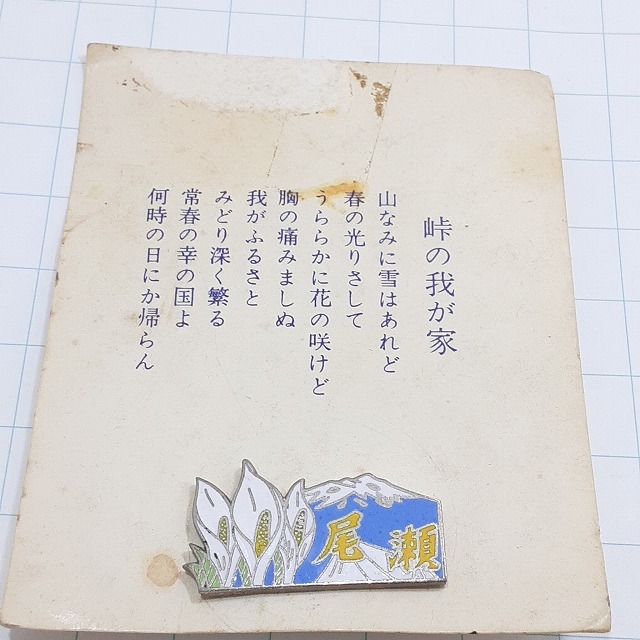 峠の我が家
山なみに雪はあれど
春の光りさして
うららかに花の咲けど
胸の痛みましぬ
我がふるさと
みどり深く繁る
常春の幸の国よ
何時の日にか帰らん
尾瀬